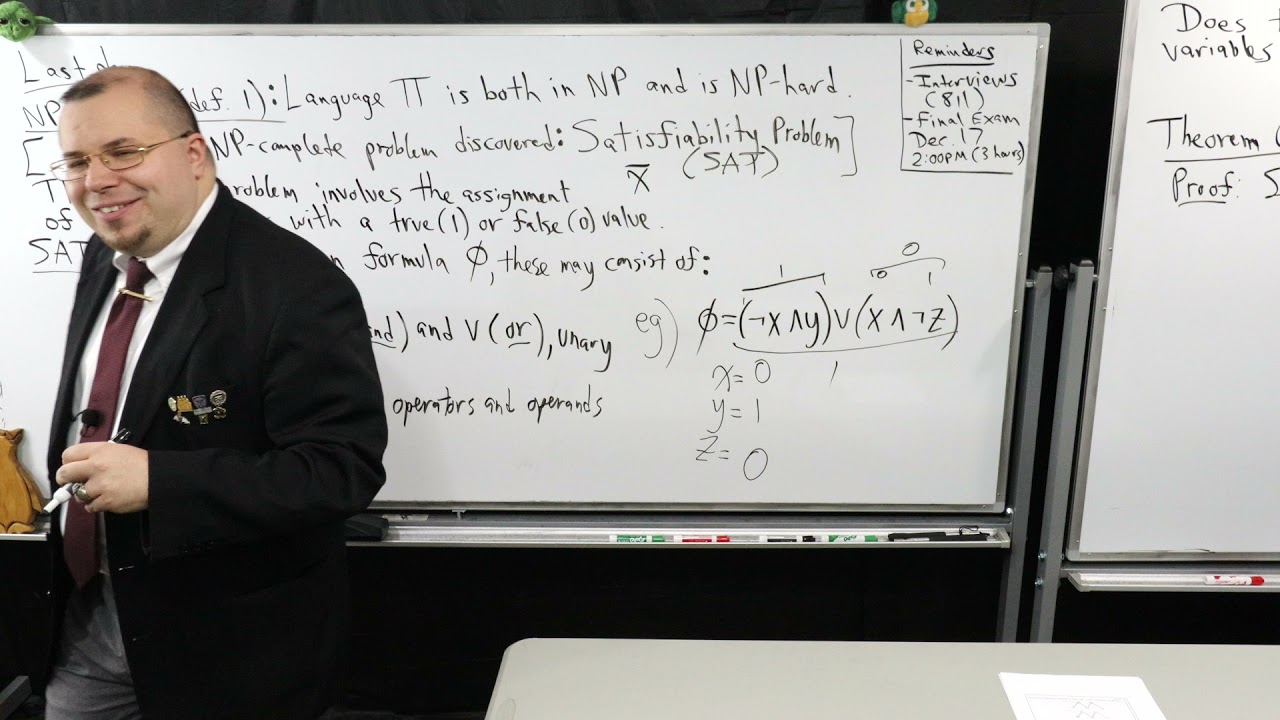 Last
NP (def. 1): Language Π is both in NP and is NP-hard.
[ NP-complete problem discovered: Satisfiability Problem]
(SAT)
T roblem involves the assignment
x̄
of with a true(1) or false(0) value.
SAT n formula ϕ, these may consist of:
nd) and ∨ (or), unary
operators and operands
eg) ϕ=(¬x∧y)∨(x∧¬z)
1
0
0 1
1
x=0
y=1
z=0
Reminders
-Interviews
(811)
-Final Exam
Dec. 17
2:00PM (3 hours)
Does
variables
Theorem (
Proof: S